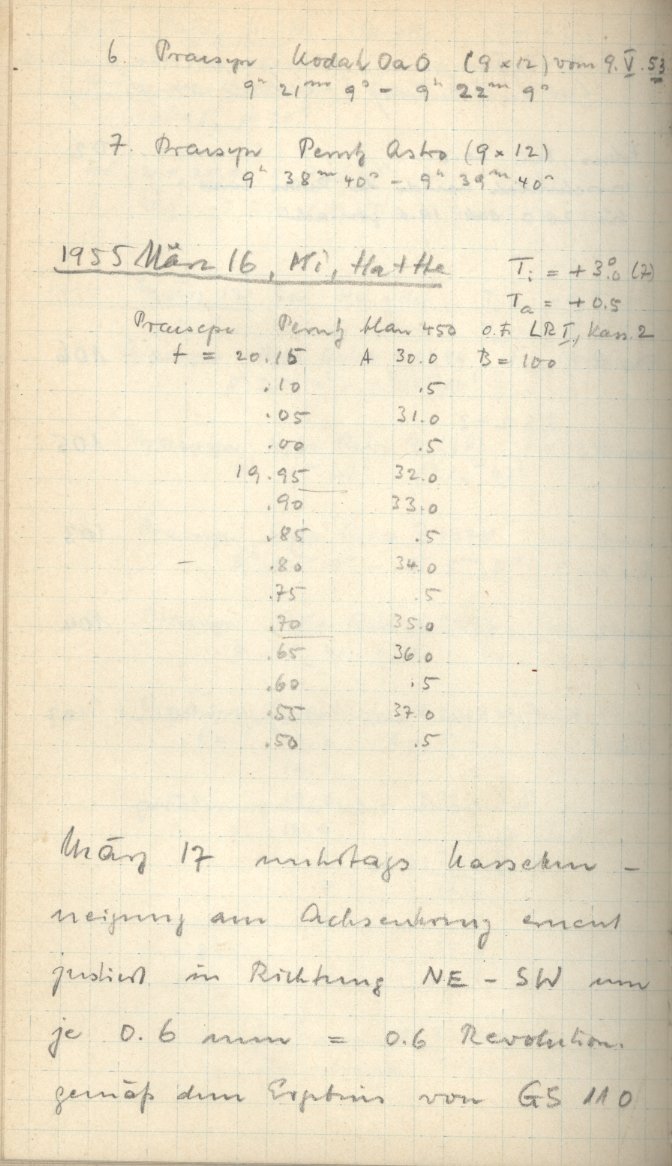 6. Praesepe Kodak OaO (9 x 12) vom 9. V. 53
9h 21m 9s - 9h 22m 9s
7. Praesepe Perutz Astro (9 x 12)
9h 38m 40s - 9h 39m 40s
1955 März 16, Mi, Ha + He Ti = + 3.°0 (7)
Ta = + 0.5
Praesepe Perutz blau 450 o.F. LR I, Kass. 2
f = 20.15 A 30.0 B = 100
.10 .5
.05 31.0
.00 .5
19.95 32.0
.90 33.0
.85 .5
.80 34.0
.75 .5
.70 35.0
.65 36.0
.60 .5
.55 37.0
.50 .5
März 17 mittags Kassetten -
neigung am Achsenkreuz erneut
justiert in Richtung NE - SW um
je 0.6 mm = 0.6 Revolution.
gemäß dem Ergebnis von GS 110